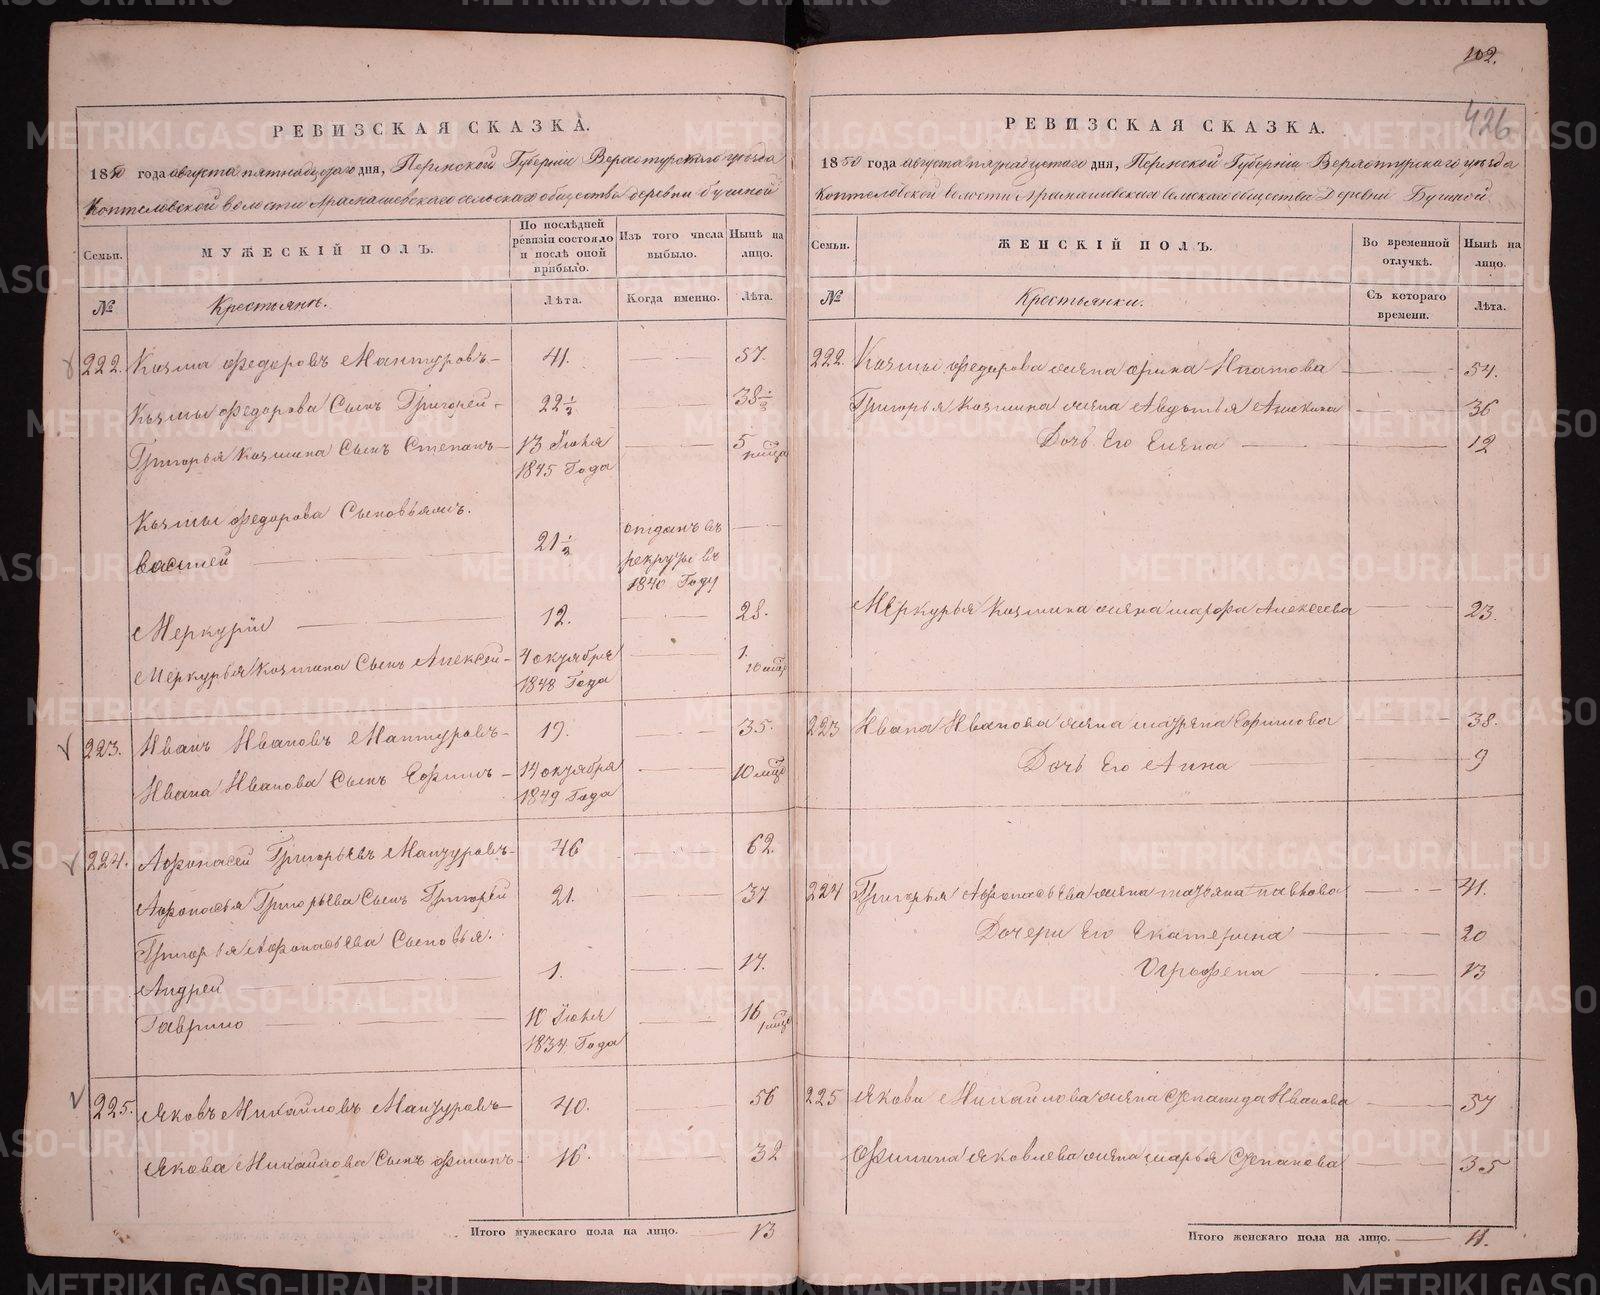 102.
426
РЕВИЗСКАЯ СКАЗКА.
1850 года августа пятнадцатого дня, Пермской Губерніи Верхотурского уезда
Коптеловской волости Арамашевского сельскаго общества деревни Бушной
Семьи. МУЖЕСКІЙ ПОЛЪ. По послѣдней ревизіи состояло и послѣ оной прибыло. Изъ того числа выбыло. Нынѣ на лицо.
№ Крестьянъ. Лѣта. Когда именно. Лѣта.
222. Козма Федоровъ Мантуровъ 41. 57.
Козмы Федорова Сынъ Григорей 22½ 38½
Григорья Козмина Сынъ Степанъ 13 Июня 1845 Года 5
Козмы Федорова Сыновьямъ.
Василей 21½ отданъ въ рекруты въ 1840 Году
Меркурій 12. 28.
Меркурья Козмина Сынъ Алексей 4 октября 1848 Года 1. 10 мцъ
223. Иванъ Ивановъ Мантуровъ 19. 35.
Ивана Иванова Сынъ Ефимъ 14 октября 1849 Года 10 мцъ
224. Афонасей Григорьевъ Мантуровъ 46 62
Афонасья Григорьева Сынъ Григорей 21. 37
Григорья Афонасьева Сыновья.
Андрей 1. 17.
Гаврило 10 Июня 1834 Года 16
225. Яковъ Михайловъ Мантуровъ 40. 56
Якова Михайлова Сынъ Филипъ 16. 32
Итого мужескаго пола на лицо. 13
РЕВИЗСКАЯ СКАЗКА.
1850 года августа пятнадцатого дня, Пермской Губерніи Верхотурского уезда
Коптеловской волости Арамашевскаго сельскаго общества Деревни Бушной
Семьи. ЖЕНСКІЙ ПОЛЪ. Во временной отлучкѣ. Нынѣ на лицо.
№ Крестьянки. Съ котораго времени. Лѣта.
222. Козмы Федорова жена Фрина Платова 54.
Григорья Козмина жена Авдотья Аникина 36
Дочь Его Елена 12
Меркурья Козмина жена Марфа Алексеева 23
223 Ивана Иванова жена Матрена Ефимова 38.
Дочь Его Анна 9
224 Григорья Афонасьева жена Татьяна Павлова 41.
Дочери Его Екатерина 20
Огрофена 13
225 Якова Михайлова жена Степанида Иванова 57
Филипа Яковлева жена Марья Степанова 35
Итого женскаго пола на лицо. 11.
METRIKI.GASO-URAL.RU